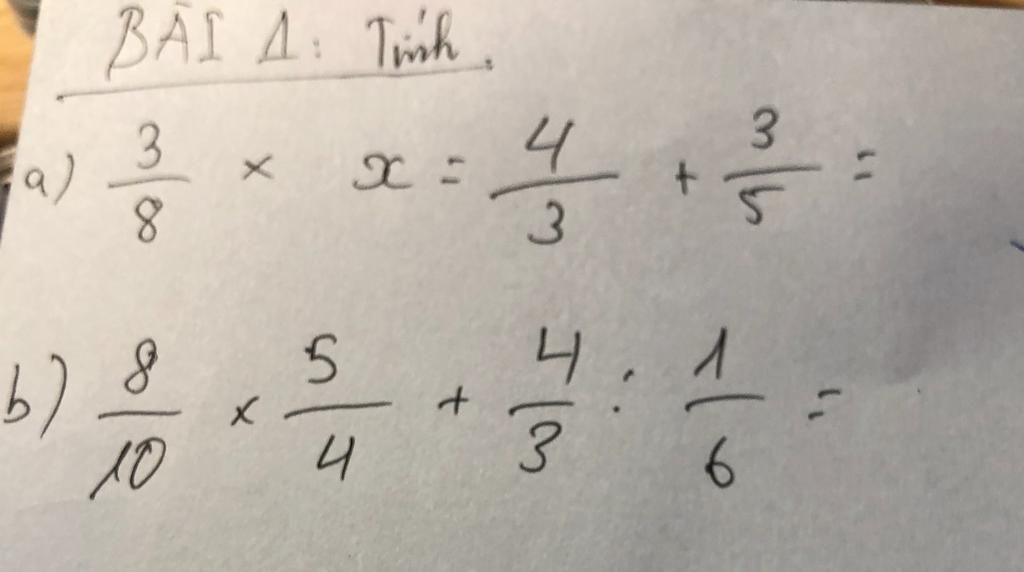 BÀI 1: Tính.
a) 3/8 × x = 4/3 + 3/5 =
b) 8/10 × 5/4 + 4/3 : 1/6 =